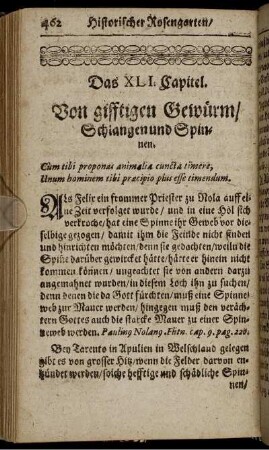 462 Historischer Rosengarten/
Das XLI. Capitel.
Von gifftigen Gewürm/
Schlangen und Spin-
nen.
Cùm tibi proponas animalia cuncta timere,
Unum hominem tibi præcipio plus esse timendum.
ALs Felix ein frommer Priester zu Nola auff ei-
ne Zeit verfolget wurde/ und in eine Höl sich
verkroche/ hat eine Spinne ihr Geweb vor die-
selbige gezogen/ damit ihn die Feinde nicht finden
und hinrichten möchten/ denn sie gedachten/ weiln die
Spinne darüber gewircket hätte/ hätte er hinein nicht
kommen können/ ungeachtet sie von andern darzu
angemahnet wurden/ in diesem Loch ihn zu suchen/
denn denen die da Gott fürchten/ muß eine Spinne-
web zur Mauer werden/ hingegen muß den veräch-
tern Gottes auch die starcke Mauer zu einer Spin-
neweb werden. cap. 9. pag. 228.
Bey Tarento in Apulien in Welschland gelegen
gibt es von grosser Hitz/ wenn die Felder darvon en-
tzündet werden/ solche hefftige und schädliche Spin-
nen/